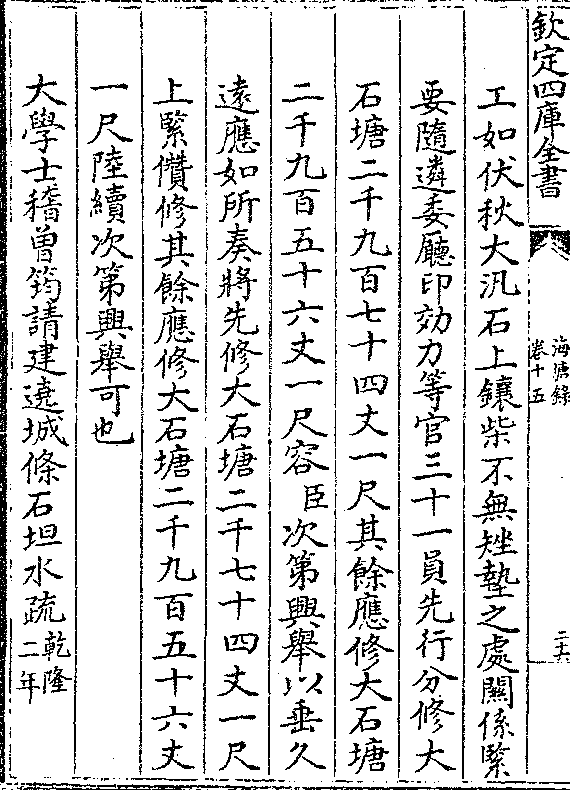 欽定四庫全書
海塘錄
卷十五
二十六
工如伏秋大汛石上鑲柴不無矬蟄之處關係緊
要隨遴委廳印効力等官三十一員先行分修大
石塘二千九百七十四丈一尺其餘應修大石塘
二千九百五十六丈一尺容臣次第興舉以垂久
遠應如所奏將先修大石塘二千七十四丈一尺
上緊儹修其餘應修大石塘二千九百五十六丈
一尺陸續次第興舉可也
大學士稽曽筠請建遶城條石坦水疏乾隆二年